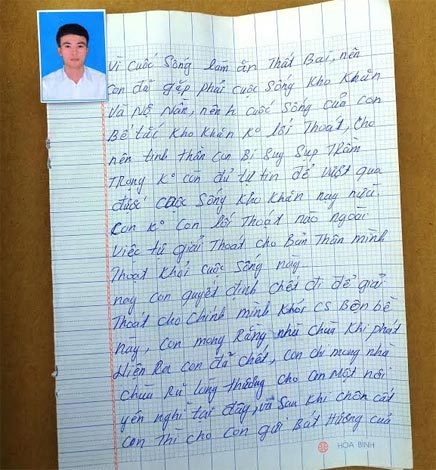 Vì cuộc sống làm ăn Thất Bại, nên
con đã gặp phải cuộc sống khó khăn
và Nợ Nần, nên cuộc sống của con
Bế tắc khó khăn ko lối Thoát, cho
nên tinh thần con Bị Suy Sụp Trầm
Trọng ko còn đủ tự tin để vượt qua
được cuộc sống khó khăn này nữa
Con ko còn lối Thoát nào ngoài
việc tự giải Thoát cho Bản Thân mình
Thoát khỏi cuộc sống này
nay con quyết định chết đi để giải
Thoát cho chính mình khỏi CS Bộn bề
này, con mong Rằng nhà chùa khi phát
Hiện Ra con đã chết, con chỉ mong nhà
chùa Rủ lòng thương cho con một nơi
yên nghỉ tại đây, và Sau khi chôn cất
con Thì cho con gửi Bát Hương của
HOA BINH